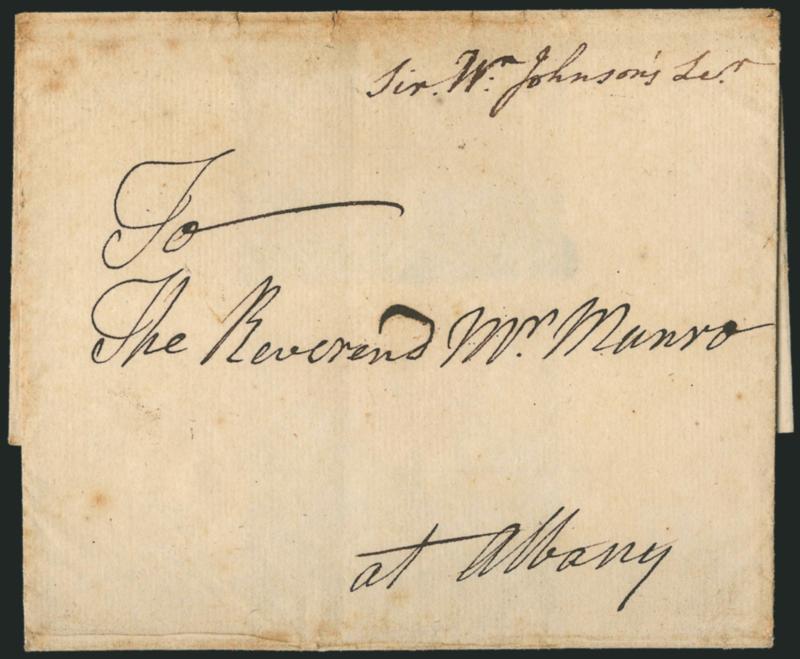 Sir. Wm. Johnson's Ler.
To
The Reverend Mr. Munro
at Albany